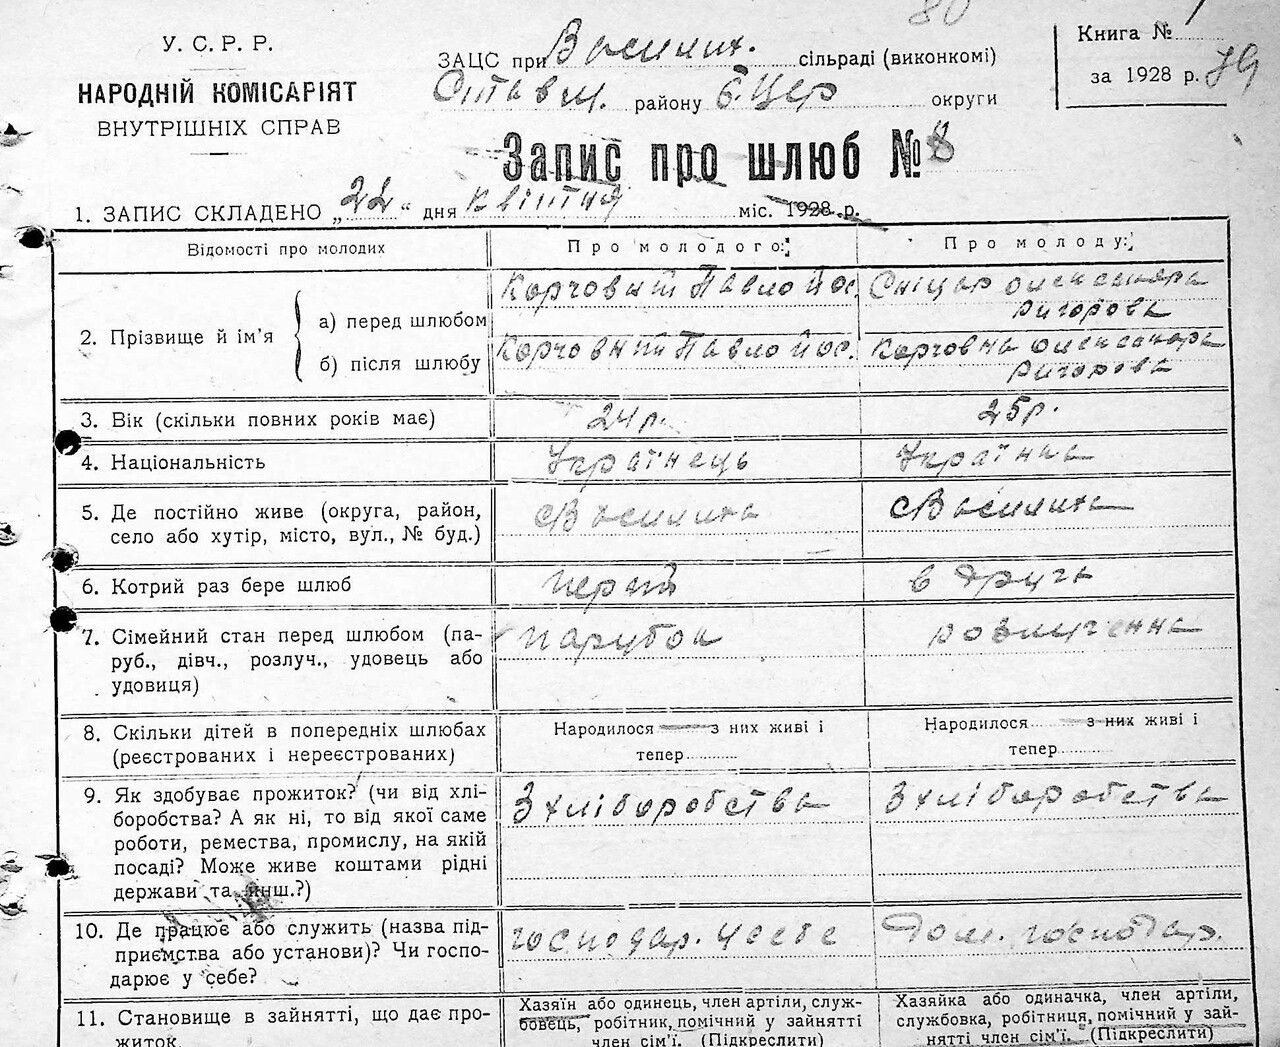 80
У. С. Р. Р.
НАРОДНІЙ КОМІСАРІЯТ
ВНУТРІШНІХ СПРАВ
ЗАЦС при Василих. сільраді (виконкомі)
Став м. району Б. Цер округи
Книга №
за 1928 р. 79
Запис про шлюб № 8
1. ЗАПИС СКЛАДЕНО „22“ дня квітня міс. 1928 р.
Відомості про молодих
Про молодого:
Про молоду:
2. Прізвище й ім'я
а) перед шлюбом
Корчовий Павло Йос.
Сніцар Олександра
Григорова
б) після шлюбу
Корчовий Павло Йос.
Корчовна Олександра
Григорова
3. Вік (скільки повних років має)
24 р.
25 р.
4. Національність
Українець
Українка
5. Де постійно живе (округа, район,
село або хутір, місто, вул., № буд.)
с Василиха
с Василиха
6. Котрий раз бере шлюб
перший
в друге
7. Сімейний стан перед шлюбом (па-
руб., дівч., розлуч., удовець або
удовиця)
парубок
розлученна
8. Скільки дітей в попередніх шлюбах
(реєстрованих і нереєстрованих)
Народилося — з них живі і
тепер
Народилося — з них живі і
тепер
9. Як здобуває прожиток? (чи від хлі-
боробства? А як ні, то від якої саме
роботи, ремества, промислу, на якій
посаді? Може живе коштами рідні
держави та инш.?)
З хліборобства
З хліборобства
10. Де працює або служить (назва під-
приємства або установи)? Чи госпо-
дарює у себе?
господар. у себе
Дом. господар.
11. Становище в зайнятті, що дає про-
житок.
Хазяїн або одинець, член артілі, служ-
бовець, робітник, помічний у зайнятті
член сім'ї. (Підкреслити)
Хазяйка або одиначка, член артілі,
службовка, робітниця, помічний у зай-
нятті член сім'ї. (Підкреслити)